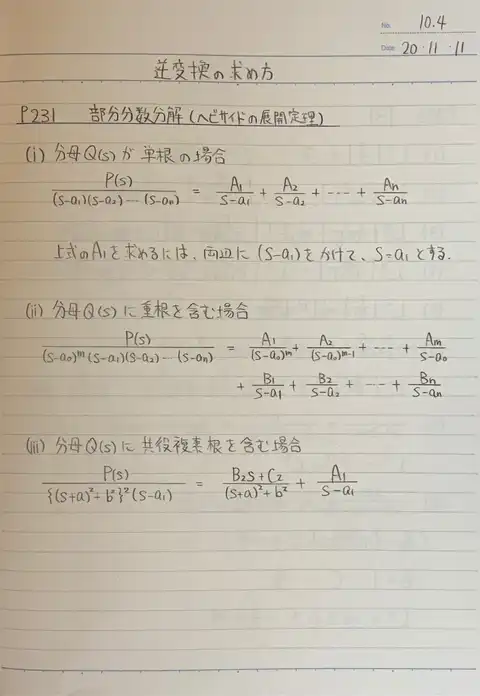 No. 10.4
Date 20・11・11
逆変換の求め方
P231 部分分数分解(ヘビサイドの展開定理)
(i) 分母Q(s)が単根の場合
P(s)/(s-a₁)(s-a₂)…(s-aₙ) = A₁/s-a₁ + A₂/s-a₂ + … + Aₙ/s-aₙ
上式のA₁を求めるには、両辺に(s-a₁)をかけて、s=a₁とする.
(ii) 分母Q(s)に重根を含む場合
P(s)/(s-a₀)ᵐ(s-a₁)(s-a₂)…(s-aₙ) = A₁/(s-a₀)ᵐ + A₂/(s-a₀)ᵐ⁻¹ + … + Aₘ/s-a₀
+ B₁/s-a₁ + B₂/s-a₂ + … + Bₙ/s-aₙ
(iii) 分母Q(s)に共役複素根を含む場合
P(s)/{(s+a)²+b²}²(s-a₁) = B₂s+C₂/(s+a)²+b² + A₁/s-a₁